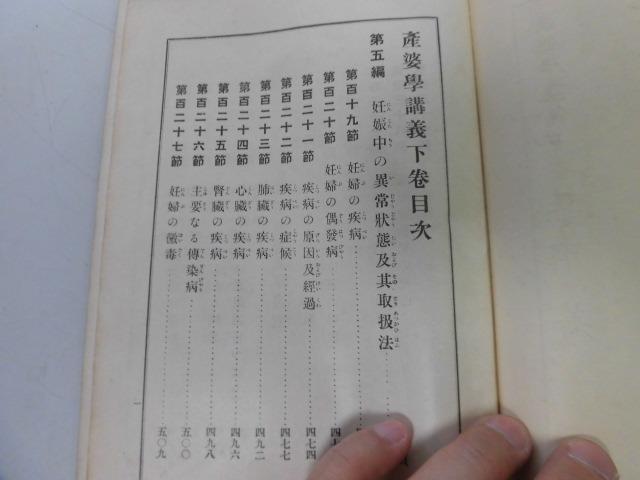 産婆學講義下卷目次
第五編 妊娠中の異常狀態及其取扱法
第百十九節 妊婦の疾病
第百二十節 妊婦の偶發病
第百二十一節 疾病の原因及經過 四七四
第百二十二節 疾病の症候 四七七
第百二十三節 肺臟の疾病 四九二
第百二十四節 心臟の疾病 四九六
第百二十五節 腎臟の疾病 四九八
第百二十六節 主要なる傳染病 五〇〇
第百二十七節 妊婦の黴毒 五〇九
一